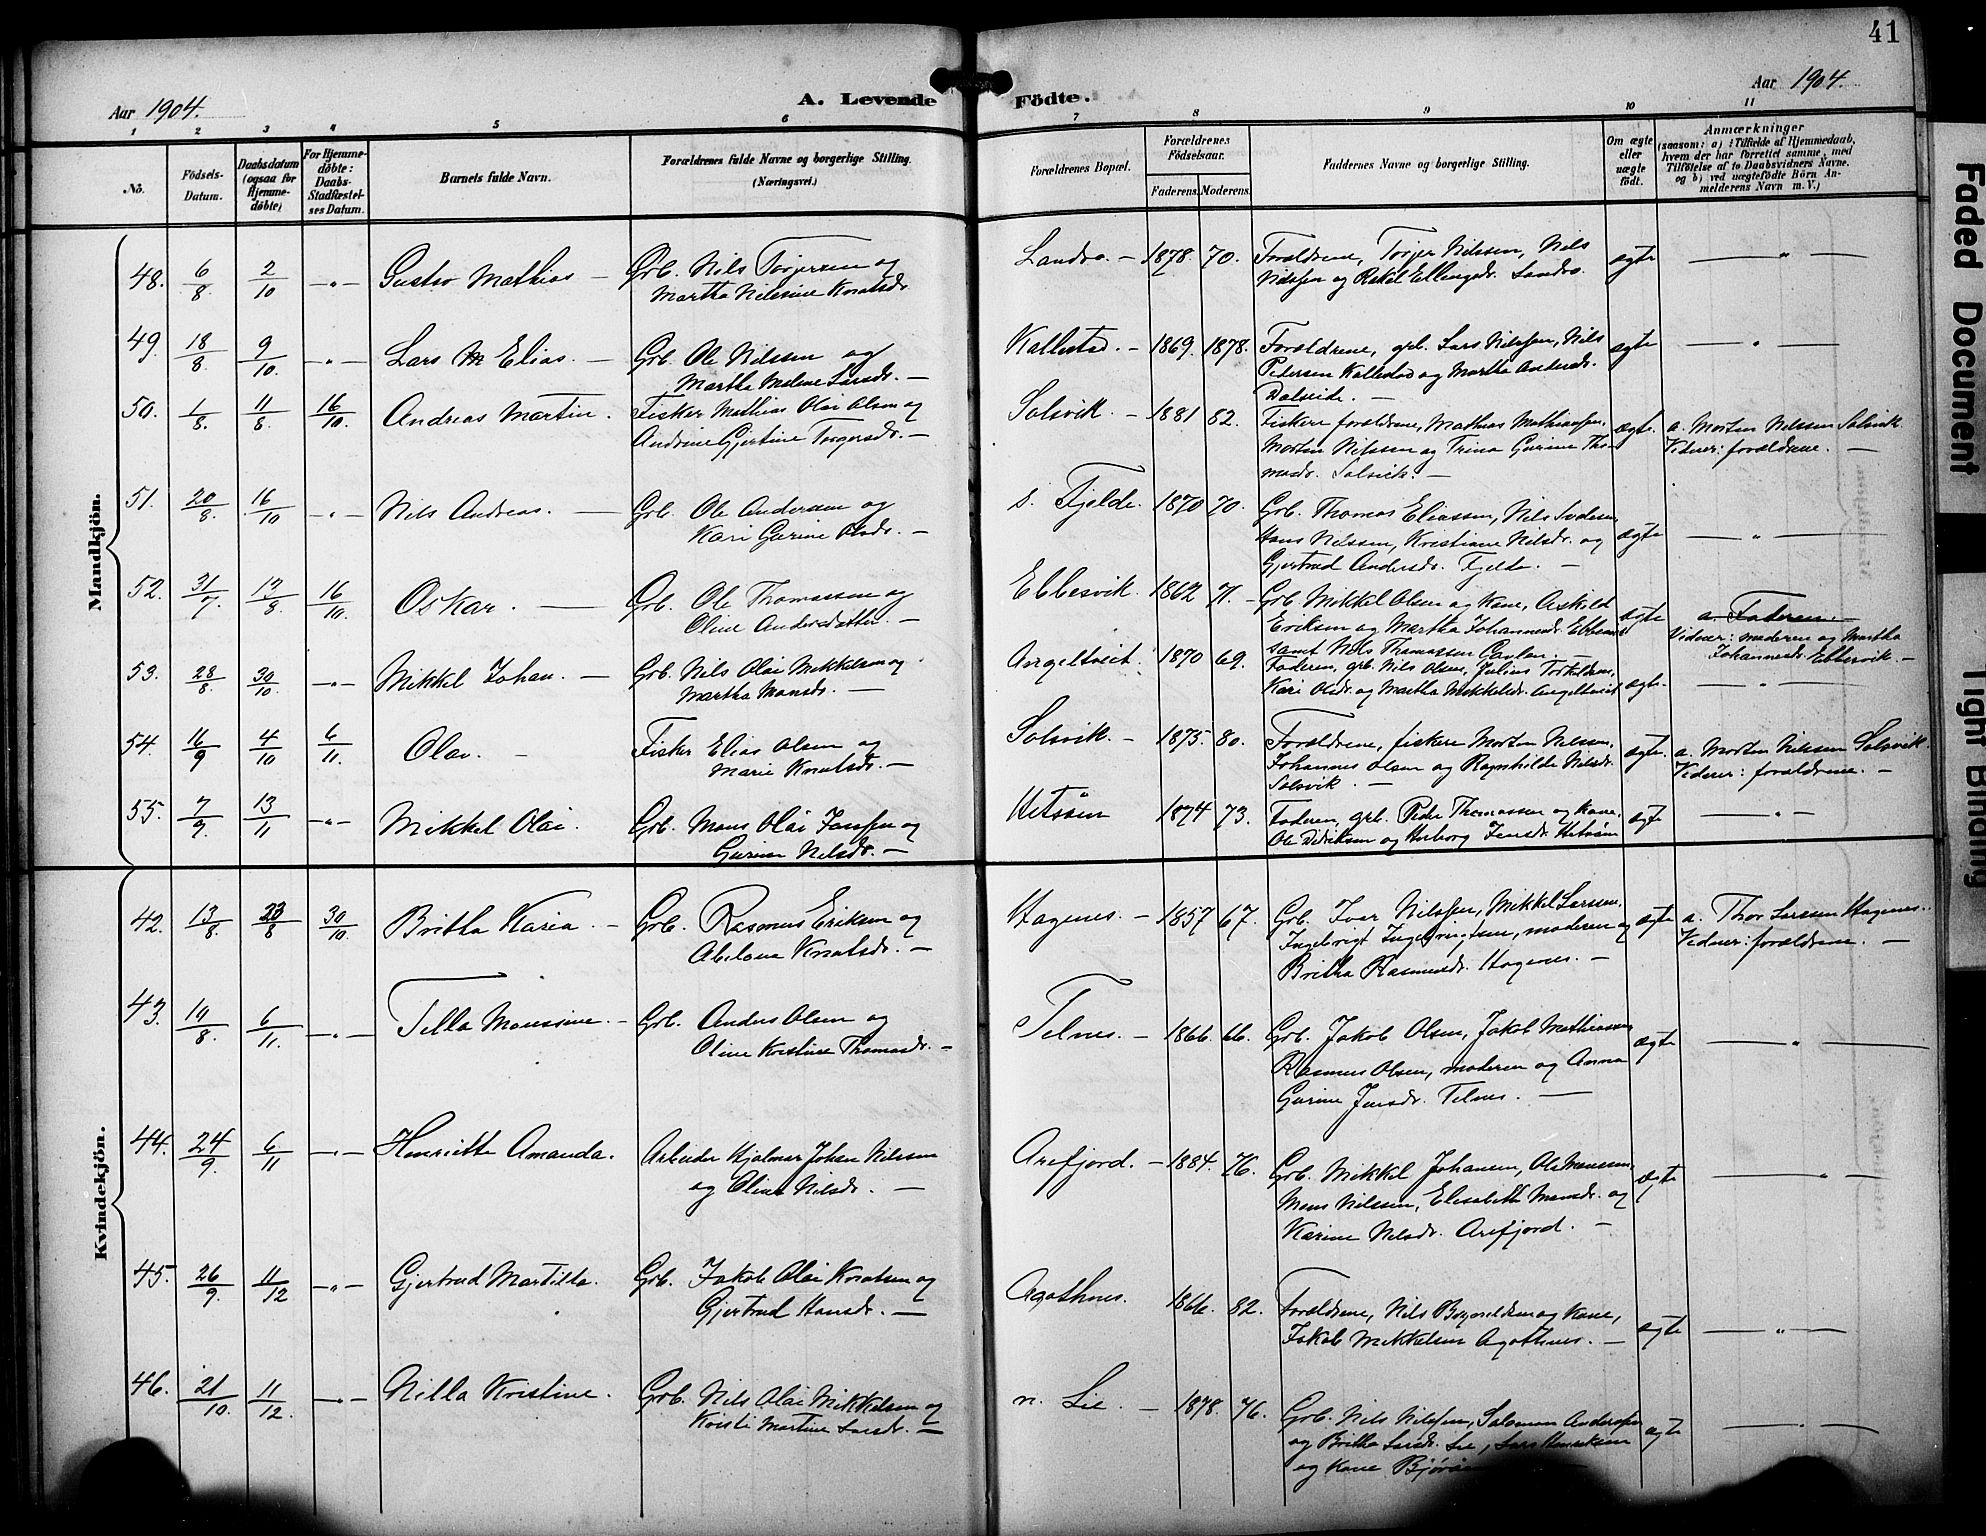 41
Aar 1904.
A. Levende Födte.
Aar 1904.
1 2 3 4 5 6 7 8 9 10 11
No.
Födsels-Datum.
Daabsdatum (ogsaa for Hjemmedöbte)
For Hjemmedöbte: Daabs-Stadfæstelses Datum.
Barnets fulde Navn.
Forældrenes fulde Navne og borgerlige Stilling.
(Næringsvei.)
Forældrenes Bopæl.
Forældrenes Födselsaar.
Faderens. Moderens.
Faddernes Navne og borgerlige Stilling.
Om ægte eller uægte födt.
Anmærkninger
(saasom: a) i Tilfælde af Hjemmedaab, hvem der har forrettet samme, med Tilföielse af to Daabsvidners Navne. og b) ved uægtefödte Börn Anmelderens Navn m. V.)
Mandkjön.
48. 6/8 2/10 -"- Gustav Mathias - Grb. Nils Torjersen og Landro. - 1878. 70. Forældrene, Torjer Nilssen, Nils ægte "
Martha Nilsine Knutsdr. Nilssen og Rakel Ellingsdr. Landro.
49. 18/8. 9/10. -"- Lars M Elias. - Grb. Ole Nilssen og Kallestad. - 1869. 1878. Forældrene, grb. Lars Nilssen, Nils ægte "
Martha Malene Larsdr. - Pedersen Kallestad og Martha Andersdr.
Dalseide. -
50. 1/8. 11/8. 16/10. Andreas Martin. Fisker Mathias Olai Olsen og Solsvik. - 1881 82. Fiskere forældrene, Mathias Mathiassen, ægte. a. Morten Nilssen Solsvik
Andrine Gjertine Torgersdr. - Morten Nilssen og Trina Gurine Tho- Vidner: forældrene. -
masdr. Solsvik. -
51. 20/8. 16/10 -"- Nils Andreas. - Grb. Ole Andersen og s. Fjelde. 1870 70. Grb. Thomas Eliassen, Nils
Kari Gurine Olsdr. - Hans Nilssen, Kristiane Nilsdr. og ægte "
Gjertrud Andersdr. Fjelde. -
52. 31/7. 13/8. 16/10. Oskar. - Grb. Ole Thomassen og Ebbesvik. 1862 71. - Grb. Mikkel Olsen og Kone, Askild ægte a. Faderen. -
Oline Andersdatter. - Eriksen og Martha Johannesdr. Ebbesvik Vidner: moderen og Martha
samt Nils Thomassen Johannesdr. Ebbesvik. -
53. 28/8. 30/10 -"- Mikkel Johan. - Grb. Nils Olai Mikkelsen og Angeltveit. 1870 69. Faderen, grb. Nils Olsen, Julius Torkildsen,
Martha Monsdr. - Kari Olsdr. og Martha Mikkelsdr. Angeltveit ægte. "
54. 16/9 4/10 6/11. Olav. - Fisker Elias Olsen og Solsvik. - 1875. 80. Forældrene, fiskere Morten Nilssen, ægte. a. Morten Nilssen Solsvik.
Marie Knutsdr. - Johannes Olsen og Ragnhilde Nilsdr. Vidner: forældrene. -
Solsvik. -
55. 7/9. 13/11 -"- Mikkel Olai. Grb. Mons Olai Janssen og Hetsöen 1874 73. Faderen, grb. Peder Thomassen og Kone, ægte "
Gurine Nilsdr. - Ole Didriksen og Herborg Jensdr. Hetsöen
Kvindekjön.
42. 13/8. 23/8 30/10. Britha Karia. - Grb. Rasmus Eriksen og Hagenes. - 1857 67. Grb. Ivar Nilssen, Mikkel Larssen, ægte a. Thor Larssen Hagenes.
Abelone Knutsdr. - Ingebrigt Ingebrigtsen, moderen og Vidner: forældrene. -
Britha Rasmusdr. Hagenes. -
43. 19/8. 6/11. -"- Tilla Monssine. - Grb. Anders Olsen og Telnes. - 1866. 66. Grb. Jakob Olsen, Jakob Mathiassen ægte "
Oline Kristine Thomasdr. - Rasmus Olsen, moderen og Anna
Gurine Jensdr. Telnes. -
44. 24/9. 6/11 -"- Henriette Amanda. Arbeider Hjalmar Johan Nilssen Arefjord. - 1884. 76. Grb. Mikkel Johansen, Ole Monssen, ægte "
og Oline Nilsdr. - Mons Nilssen, Elisabeth Monsdr. og
Karine Nilsdr. Arefjord. -
45. 26/9. 11/12 -"- Gjertrud Martilla. Grb. Jakob Olai Knutsen og Agothnes. 1866. 82. Forældrene, Nils og Kone, ægte "
Gjertrud Hansdr. - Jakob Mikkelsen Agothnes. -
46. 21/10. 11/12. -"- Nilla Kristine. Grb. Nils Olai Mikkelsen og n. Lie. - 1878. 76. Grb. Nils Nilssen, Salomon Anderssen ægte "
Kristi Martine Larsdr. - og Britha Larsdr. Lie, Lars Henriksen
og Kone
Faded Document
Tight Binding